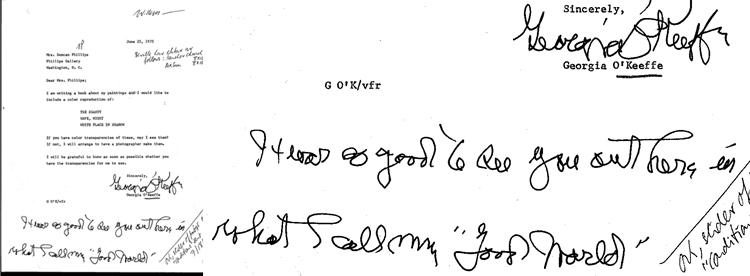 June
Mrs. Duncan Phillips
Phillips Gallery
Washington, D. C.
Dear Mrs. Phillips;
I am writing a book about my paintings and I would like to
include a color reproduction of:
THE SHANTY
WAVE, NIGHT
WHITE PLACE IN SHADOW
If you have color transparencies of these, may I see them?
If not, I will arrange to have a photographer make them.
I will be grateful to know as soon as possible whether you
have the transparencies for me to use.
Sincerely,
Georgia O'Keeffe
Georgia O'Keeffe
G O'K/vfr
It was so good to see you out here in
what I call my "Good World"
Sincerely,
Georgia O'Keeffe
Georgia O'Keeffe
G O'K/vfr
It was so good to see you out here in
what I call my "Good World"